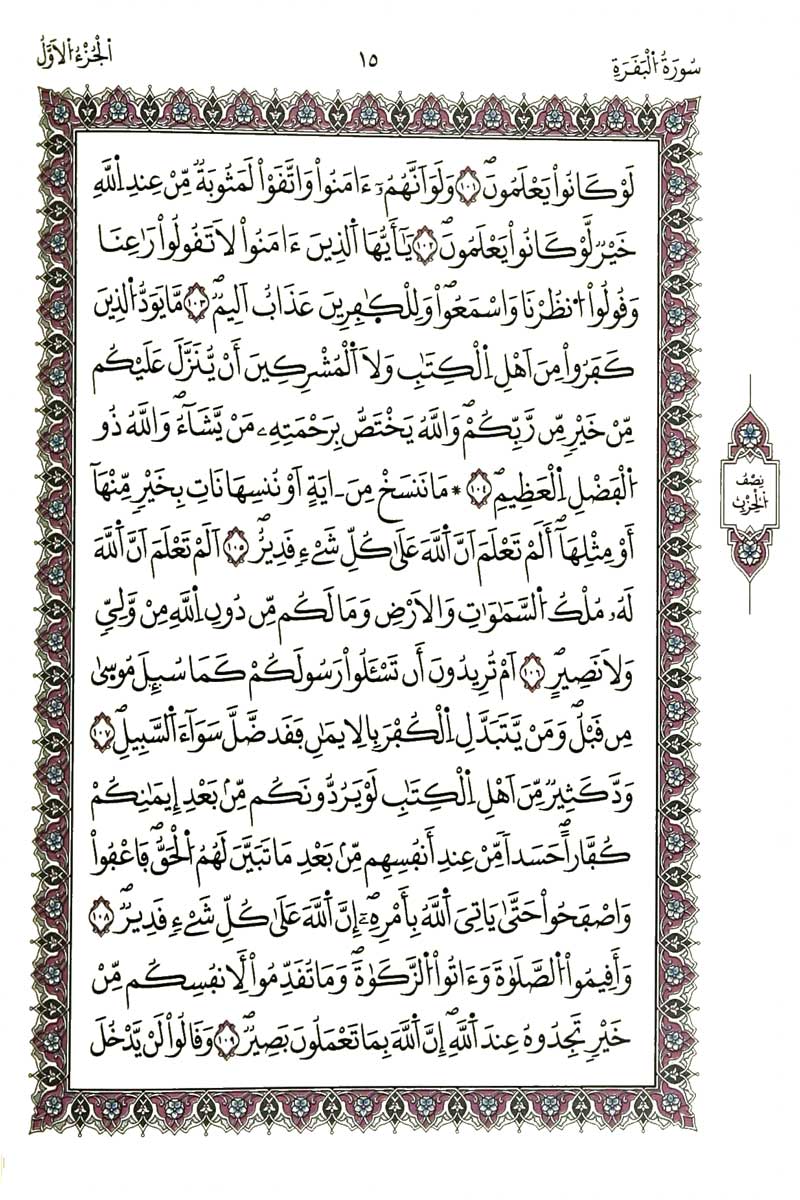 سُورَةُ الْبَقَرَةِ
١٥
الْجُزْءُ الْأَوَّلُ
لَوْ كَانُواْ يَعْلَمُونَۖ ١٠١ وَلَوَ اَنَّهُمُۥٓ ءَامَنُواْ وَاتَّقَوْاْ لَمَثُوبَةٞ مِّنْ عِندِ اِ۬للَّهِ
خَيْرٞ لَّوْ كَانُواْ يَعْلَمُونَۖ ١٠٢ يَٰٓأَيُّهَا اَ۬لذِينَ ءَامَنُواْ لَا تَقُولُواْ رَٰعِنَا
وَقُولُواْ اُ۟نظُرْنَا وَاسْمَعُواْۖ وَلِلْكٰ۪فِرِينَ عَذَابٌ اَلِيمٞۖ ١٠٣ مَّا يَوَدُّ اُ۬لذِينَ
كَفَرُواْ مِنَ اَهْلِ اِ۬لْكِتَٰبِ وَلَا اَ۬لْمُشْرِكِينَ أَنْ يُّنَزَّلَ عَلَيْكُم
مِّنْ خَيْرٖ مِّن رَّبِّكُمْۖ وَاللَّهُ يَخْتَصُّ بِرَحْمَتِهِۦ مَنْ يَّشَآءُۖ وَاللَّهُ ذُو
اُ۬لْفَضْلِ اِ۬لْعَظِيمِۖ ١٠٤ * مَا نَنسَخْ مِنَ ـ ايَةٍ اَوْ نُنسِهَا نَاتِ بِخَيْرٖ مِّنْهَآ
أَوْ مِثْلِهَآۖ أَلَمْ تَعْلَمَ اَنَّ اَ۬للَّهَ عَلَىٰ كُلِّ شَےْءٖ قَدِيرٌۖ ١٠٥ اَلَمْ تَعْلَمَ اَنَّ اَ۬للَّهَ
لَهُۥ مُلْكُ اُ۬لسَّمَٰوَٰتِ وَالَارْضِ وَمَا لَكُم مِّن دُونِ اِ۬للَّهِ مِنْ وَّلِيّٖ
وَلَا نَصِيرٍۖ ١٠٦ اَمْ تُرِيدُونَ أَن تَسْـَٔلُواْ رَسُولَكُمْ كَمَا سُئِلَ مُوسۭيٰ
مِن قَبْلُۖ وَمَنْ يَّتَبَدَّلِ اِ۬لْكُفْرَ بِالِايمَٰنِ فَقَد ضَّلَّ سَوَآءَ اَ۬لسَّبِيلِۖ ١٠٧
وَدَّ كَثِيرٞ مِّنَ اَهْلِ اِ۬لْكِتَٰبِ لَوْ يَرُدُّونَكُم مِّنۢ بَعْدِ إِيمَٰنِكُمْ
كُفَّاراًۖ حَسَداٗ مِّنْ عِندِ أَنفُسِهِم مِّنۢ بَعْدِ مَا تَبَيَّنَ لَهُمُ اُ۬لْحَقُّۖ فَاعْفُواْ
وَاصْفَحُواْ حَتَّىٰ يَاتِيَ اَ۬للَّهُ بِأَمْرِهِۦٓۖ إِنَّ اَ۬للَّهَ عَلَىٰ كُلِّ شَےْءٖ قَدِيرٞۖ ١٠٨
وَأَقِيمُواْ اُ۬لصَّلَوٰةَ وَءَاتُواْ اُ۬لزَّكَوٰةَۖ وَمَا تُقَدِّمُواْ لِأَنفُسِكُم مِّنْ
خَيْرٖ تَجِدُوهُ عِندَ اَ۬للَّهِۖ إِنَّ اَ۬للَّهَ بِمَا تَعْمَلُونَ بَصِيرٞۖ ١٠٩ وَقَالُواْ لَنْ يَّدْخُلَ
نِصْفُ
الْحِزْبِ